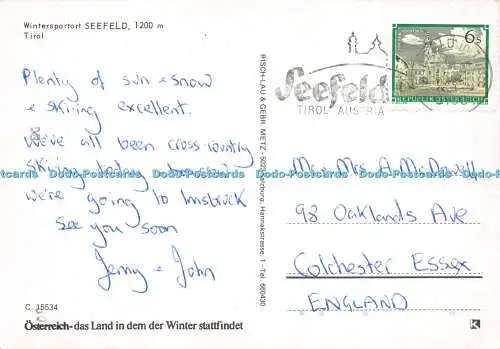 Wintersportort SEEFELD, 1200 m
Tirol
Plenty of sun & snow
& skiing excellent.
We've all been cross-country
skiing today
we're going to Innsbruck
See you soon
Jenny & John
C 15534
Österreich-das Land in dem der Winter stattfindet
RISCH-LAU & GEBR. METZ, 5020 Salzburg, Hannakstrasse 1 - Tel. 660430
Seefeld
TIROL AUSTRIA
6 S
REPUBLIK ÖSTERREICH
Mr & Mrs A McDowell
98 Oaklands Ave
Colchester Essex
ENGLAND
K
Postcards www.postcards